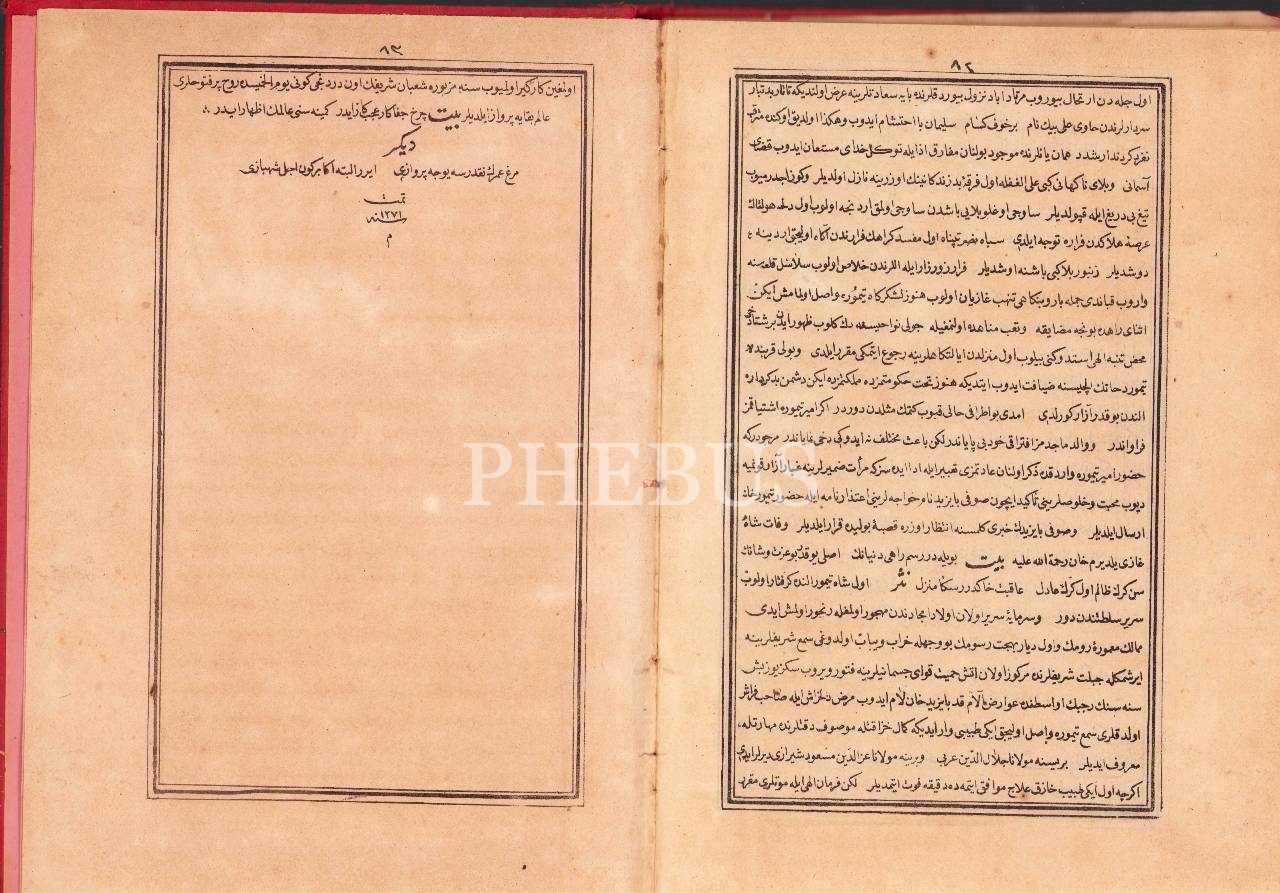 ٨٢
اول جمله دن ارتحال بیوروب مرتاد اباد نزول بیوردقلرنده پایه سعادتلرینه عرض اولندیکه تاتار بدتبار
سردارلرندن حاوی علی بیك نام برخوف کسنام سلیمان با احتشام ایدوب وهکذا اولدیق اوکنده
عمان یانلرنده موجود بولنان مفارق اذایله توکل خدای مستعان ایدوب قضای
آسمانی وبلای ناکهانی کبی علی الغفله اول فرقهٔ بدزندکانینك اوزرینه نازل اولدیلر
تیغ بی دریغ ایله قپولدیلر ساوجی اوغلو بلایی باشدن ساوجی اولمق اردنجه اولوب اول
عرصهٔ هلاکدن فراره توجه ایلدی سپاه نصرتپناه اول مفسد کراهك فرارندن آکاه اولیجق اردینه
دوشدیلر زنبور بلا کبی باشنه اوشدیلر فرار زور زار ایله اللرندن خلاص اولوب سلاسل قلعه سنه
واروب قپاندی جمله بار وبنکاهی تنهب غازیان اولوب هنوز لشکرکاه تیموره واصل اولمامش ایکن
اثنای راهده بونجه مضایقه وتعب مشاهده اولنمغیله
محض تنبه الهی استدوکنی بیلوب اول منزلدن ایالتکاهلرینه رجوع ایتمکی مقرر ایلدی وبولی قربنده
تیمور دخانك ایلچیسنه ضیافت ایدوب ایتدیکه هنوز تحت حکومتمزده مملکتمزده ایکن دشمن بدکرداره
الندن بوقدر آزار کورلدی امدی بو اطرافی خالی قیوب کتمك مثلدن دوردر اکر امیر تیموره اشتیاقمز
فراواندر ووالد ماجدمز افتراقی خود بی پایاندر لکن باعث مختلف نه ایدوکی دخی نمایاندر مرجودرکه
حضور امیر تیموره واردقده ذکر اولنان عادتمزی تعبیر ایله ادا ایده سزکه مرآت ضمیرلرینه غبار آزار قونمیه
دیوب محبت وخلوصلرینی تأکید ایچون صوفی بایزید نام خواجه لرینی اعتذارنامه ایله حضور تیمور خانه
ارسال ایلدیلر وصوفی بایزیدك خبری کلمسنه انتظار اوزره قصبهٔ بولیده قرار ایلدیلر وفات شاه
غازی یلدیرم خان رحمة الله علیه بیت بویله در رسم راهی دنیانك اصلی یوقدر بو عزت وشانك
سن کرك ظالم اول کرك عادل عاقبت خاکدر سکا منزل نثر اول شاه تیمور النده کرفتار اولوب
سریر سلطنتندن دور وسرمایهٔ سریر اولان اولاد امجادندن مهجور اولمغله رنجور اولمش ایدی
ممالك معمورهٔ رومك واول دیار بهجت رسومك بو وجهله خراب ویباب اولدوغی سمع شریفلرینه
ایرشمکله جبلت شریفلرنده مرکوز اولان اتش حمیت قوای جسمانیلرینه فتور ویروب سکز یوز بش
سنه سنك رجبك اواسطنده عوارض آلام قد بایزید خان لام ایدوب مرض دلخراش ایله صاحب فراش
اولدقلری سمع تیموره واصل اولیجق ایکی طبیبی وار ایدیکه کمال حذاقتله موصوف دقتلرنده مهارتله
معروف ایدیلر بریسنه مولانا جلال الدین عربی وبرینه مولانا عز الدین مسعود شیرازی دیرلر ایدی
اکرچه اول ایکی طبیب حاذق علاج موافق ایتمه ده دقیقه فوت ایتمدیلر لکن فرمان الهی ایله موتلری مقرر
٨٣
اولنغین کارکیر اولمیوب سنه مزبوره شعبان شریفك اون دردنجی کونی یوم الخمیسده روح پرفتوحلری
عالم بقایه پرواز ایلدیلر بیت چرخ جفاکار عجب کاز ایدر کمینه سنی عالمك اظهار ایدر
دیکر
مرغ عمرك نقدر سه یوجه پروازی ایرر البته اکا بر کون اجل شهبازی
تمت
سنه ١٢٧١
م
PHEBUS